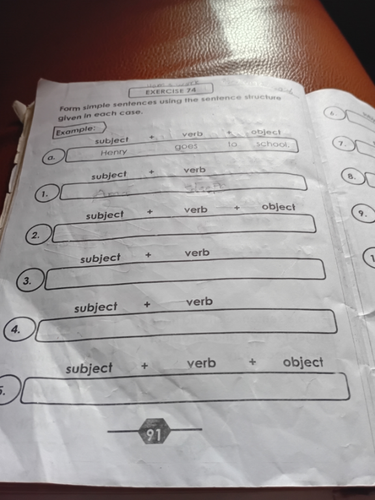 EXERCISE 74
Form simple sentences using the sentence structure
given in each case.
Example:
subject + verb + object
a. Henry goes to school.
subject + verb
1.
subject + verb + object
2.
subject + verb
3.
subject + verb
4.
subject + verb + object
5.
91
6.
7.
8.
9.